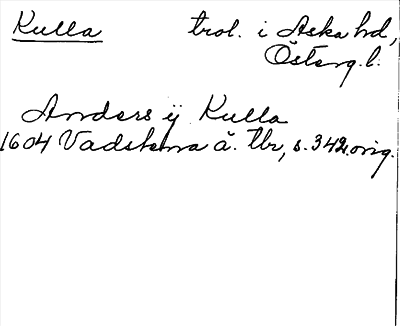 Kulla trol. i Aska hd,
Österg.l.
Anders ij Kulla
1604 Vadstena ä. tbr, s. 342. orig.